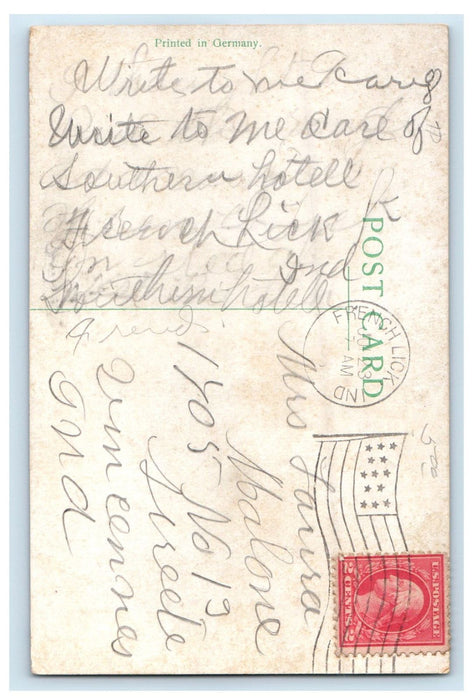 Printed in Germany.
Write to me Care of
Write to me Care of
Southern hotell
French Lick
Ind
Southern hotell
POST CARD
FRENCH LICK
AM
IND
Mrs Laura
Malone
1405 No 13
Streete
Vincennes
Ind
U.S. POSTAGE
2 CENTS 2